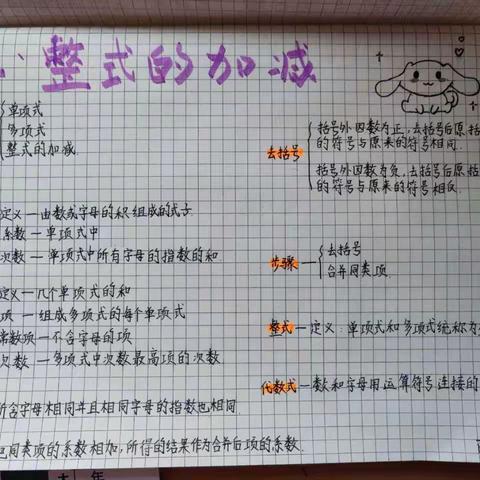 整式的加减
单项式
多项式
整式的加减.
定义—由数或字母的积组成的式子
系数—单项式中
次数—单项式中所有字母的指数的和
定义—几个单项式的和
项—组成多项式的每个单项式
常数项—不含字母的项
次数—多项式中次数最高项的次数
所含字母相同并且相同字母的指数也相同.
把同类项的系数相加,所得的结果作为合并后项的系数.
去括号
括号外因数为正,去括号后原括
的符号与原来的符号相同.
括号外因数为负,去括号后原括
的符号与原来的符号相反
步骤—
去括号
合并同类项
整式—定义:单项式和多项式统称为
代数式—数和字母用运算符号连接的